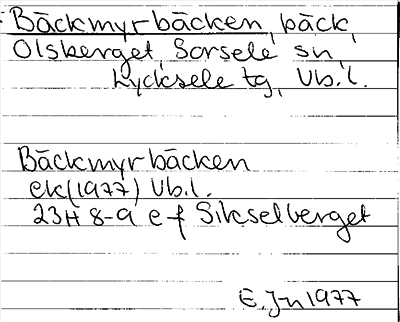 Bäckmyrbäcken, bäck,
Olsberget, Sorsele sn,
Lycksele tg, Vb.l.
Bäckmyrbäcken
ek(1977) Vb.l.
23H 8-9 e-f Sikselberget
E.Jn 1977